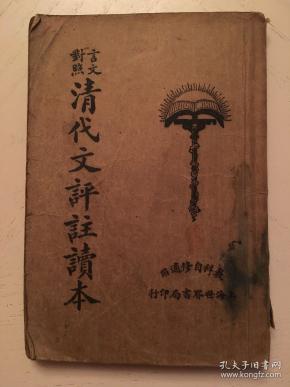 言文
對照
清代文評註讀本
教科自修適用
上海世界書局印行
孔夫子旧书网